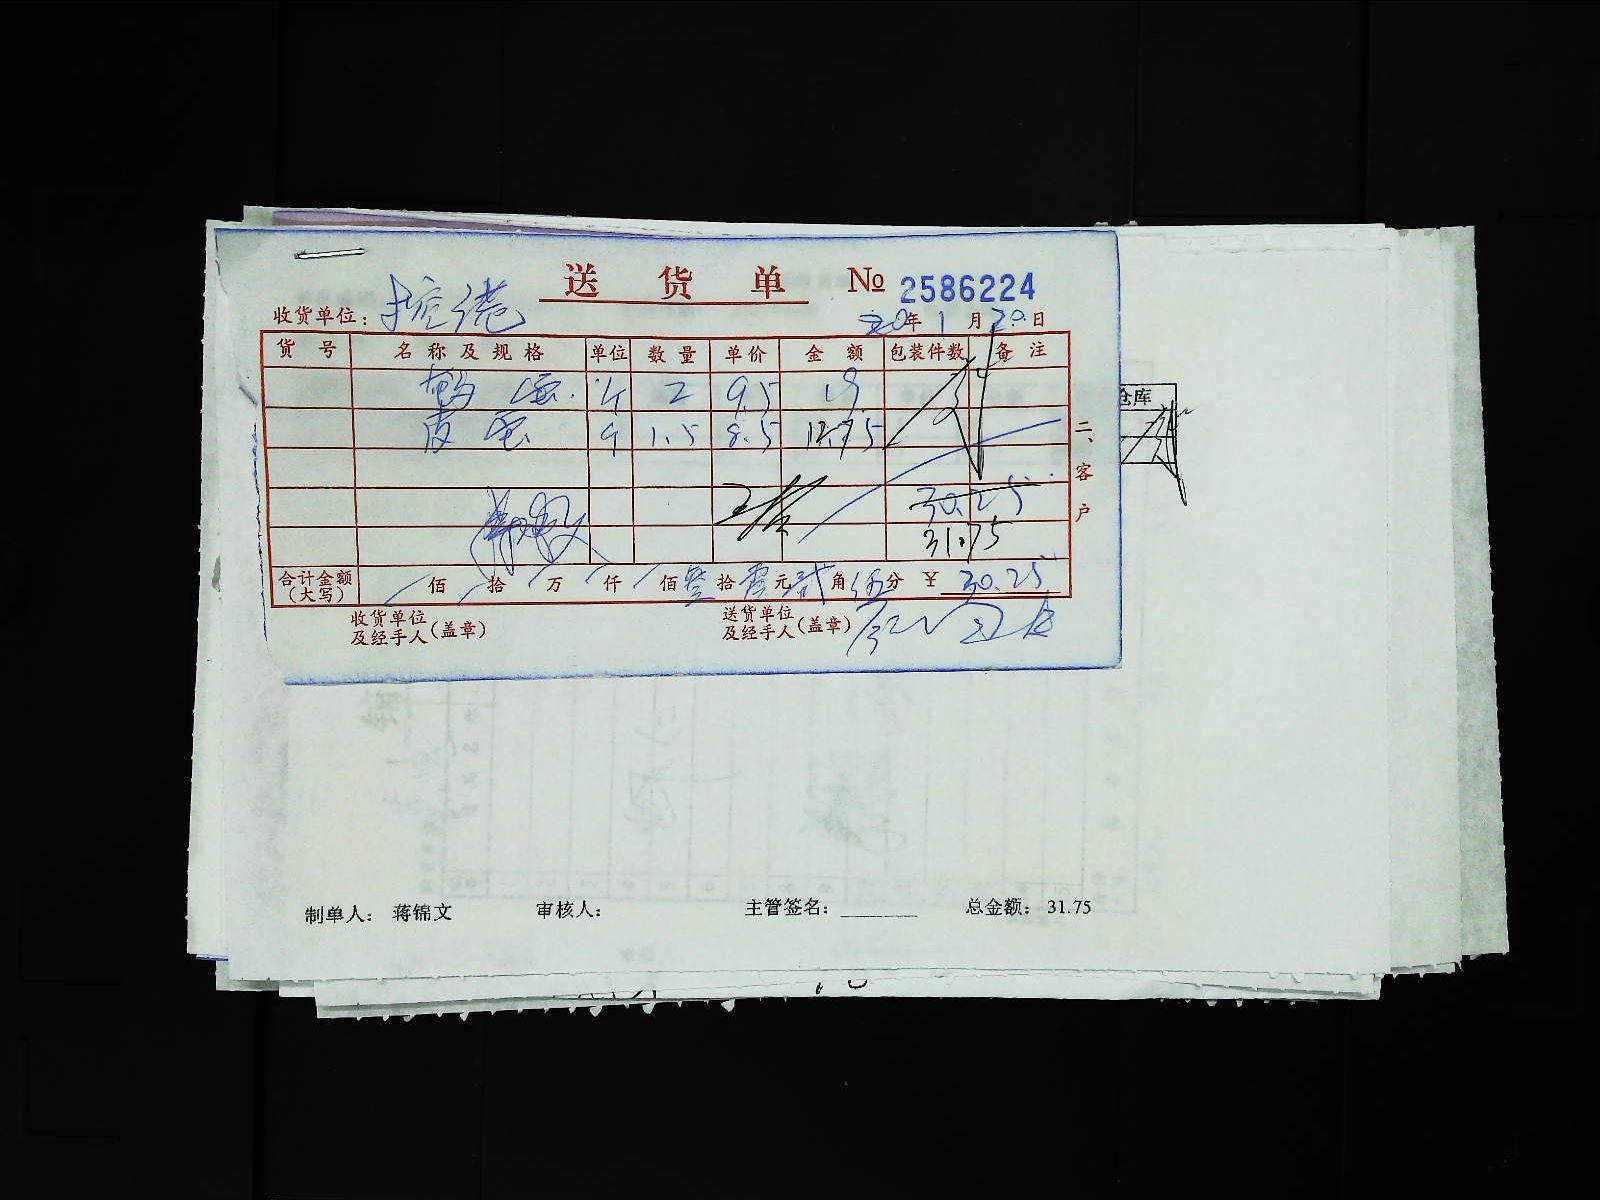 送 货 单 № 2586224
收货单位： 20年1月20日
货 号 名 称 及 规 格 单位 数 量 单价 金 额 包装件数 备 注
2 9.5 19
1.5 8.5 12.75
30.25
31.75
合计金额（大写） 佰 拾 万 仟 佰 叁 拾 零 元 贰 角 伍 分 ￥ 30.25
收货单位及经手人（盖章） 送货单位及经手人（盖章）
二、客户
仓库
制单人： 蒋锦文 审核人： 主管签名： 总金额： 31.75